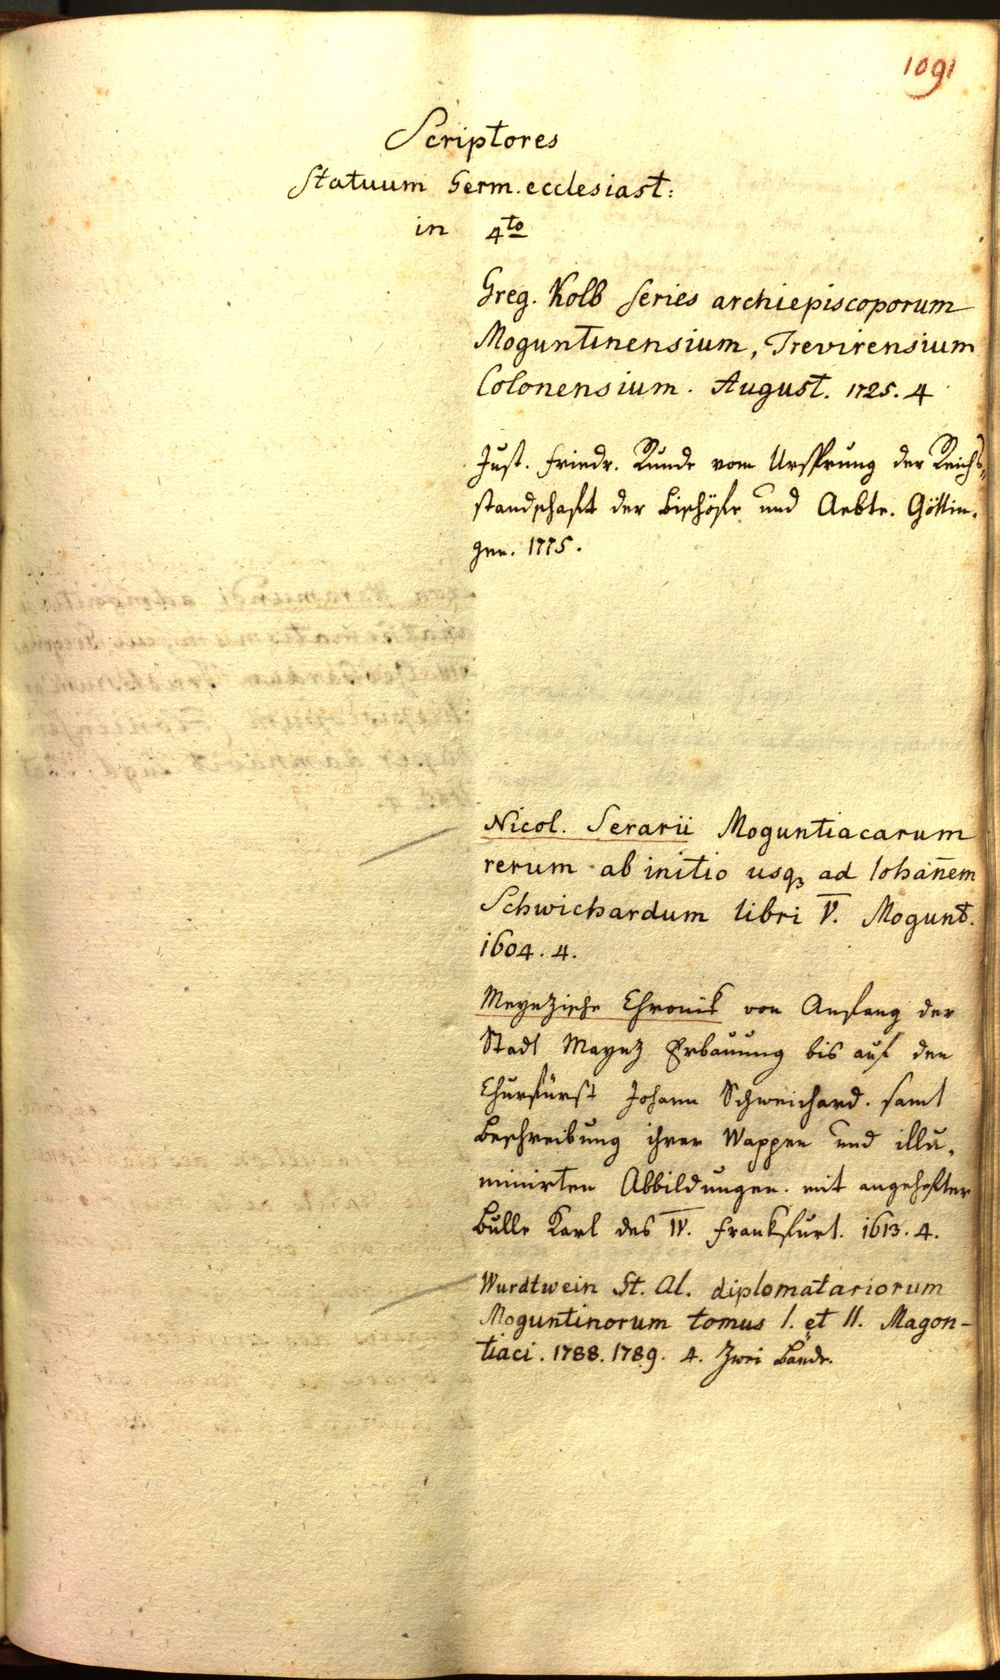 1091
Scriptores
Statuum Germ. ecclesiast:
in 4to
Greg. Kolb series archiepiscoporum
Moguntinensium, Trevirensium
Colonensium. August. 1725. 4
Just. Friedr. Runde vom Ursprung der Reichs„
standschaft der Bischöfe und Aebte. Göttin„
gen. 1775.
Nicol. Serarii Moguntiacarum
rerum ab initio usq3 ad Iohan̄em
Schwichardum libri V. Mogunt.
1604. 4.
Meynzische Chronik von Anfang der
Stadt Maynz Erbauung bis auf den
Churfürst Johann Schweichard. samt
Beschreibung ihrer Wappen und illu„
minirten Abbildungen. mit angehefter
Bulle Karl des IV. Frankfurt. 1613. 4.
Wurdtwein St. Al. diplomatariorum
Moguntinorum tomus I. et II. Magon-
tiaci. 1788. 1789. 4. Zwei Bände.